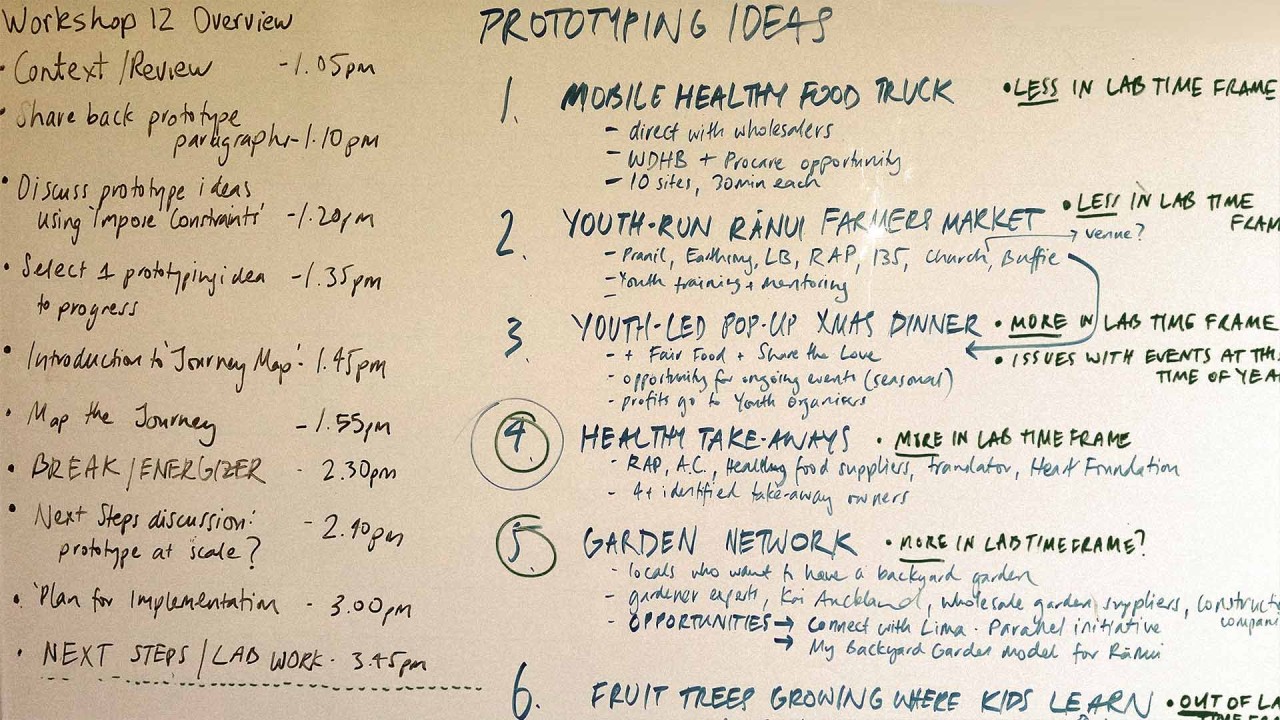 Workshop 12 Overview
• Context/Review - 1.05pm
• Share back prototype
paragraphs - 1.10pm
• Discuss prototype ideas
using 'Impose Constraints' - 1.20pm
• Select 1 prototyping idea - 1.35pm
to progress
• Introduction to 'Journey Map' - 1.45pm
• Map the Journey - 1.55pm
• BREAK/ENERGIZER - 2.30pm
• Next Steps discussion: - 2.40pm
prototype at scale?
• 'Plan for Implementation - 3.00pm
• NEXT STEPS/LAB WORK - 3.45pm
PROTOTYPING IDEAS
1. MOBILE HEALTHY FOOD TRUCK • LESS IN LAB TIME FRAME
- direct with wholesalers
- WDHB + Procare opportunity
- 10 sites, 30min each
2. YOUTH-RUN RĀNUI FARMERS MARKET • LESS IN LAB TIME
FRAM
→ venue?
- Pranil, Earthsong, LB, RAP, 135, church, Buffie
- Youth training + mentoring
-
3. YOUTH-LED POP-UP XMAS DINNER • MORE IN LAB TIME FRAME
- + Fair Food + Share the Love • ISSUES WITH EVENTS AT THI
TIME OF YEA
- opportunity for ongoing events (seasonal)
- profits go to Youth Organisers
4. HEALTHY TAKE-AWAYS • MORE IN LAB TIMEFRAME
- RAP, A.C., Healthy food suppliers, translator, Heart Foundation
- 4+ identified take-away owners
5. GARDEN NETWORK • MORE IN LAB TIMEFRAME?
- locals who want to have a backyard garden
- gardener experts, Kai Auckland, wholesale garden suppliers, constructi
compani
- OPPORTUNITIES → Connect with Lima. Parallel initiative
→ My Backyard Garden model for Rānui
6. FRUIT TREES GROWING WHERE KIDS LEARN • OUT OF LA
TIME FRA